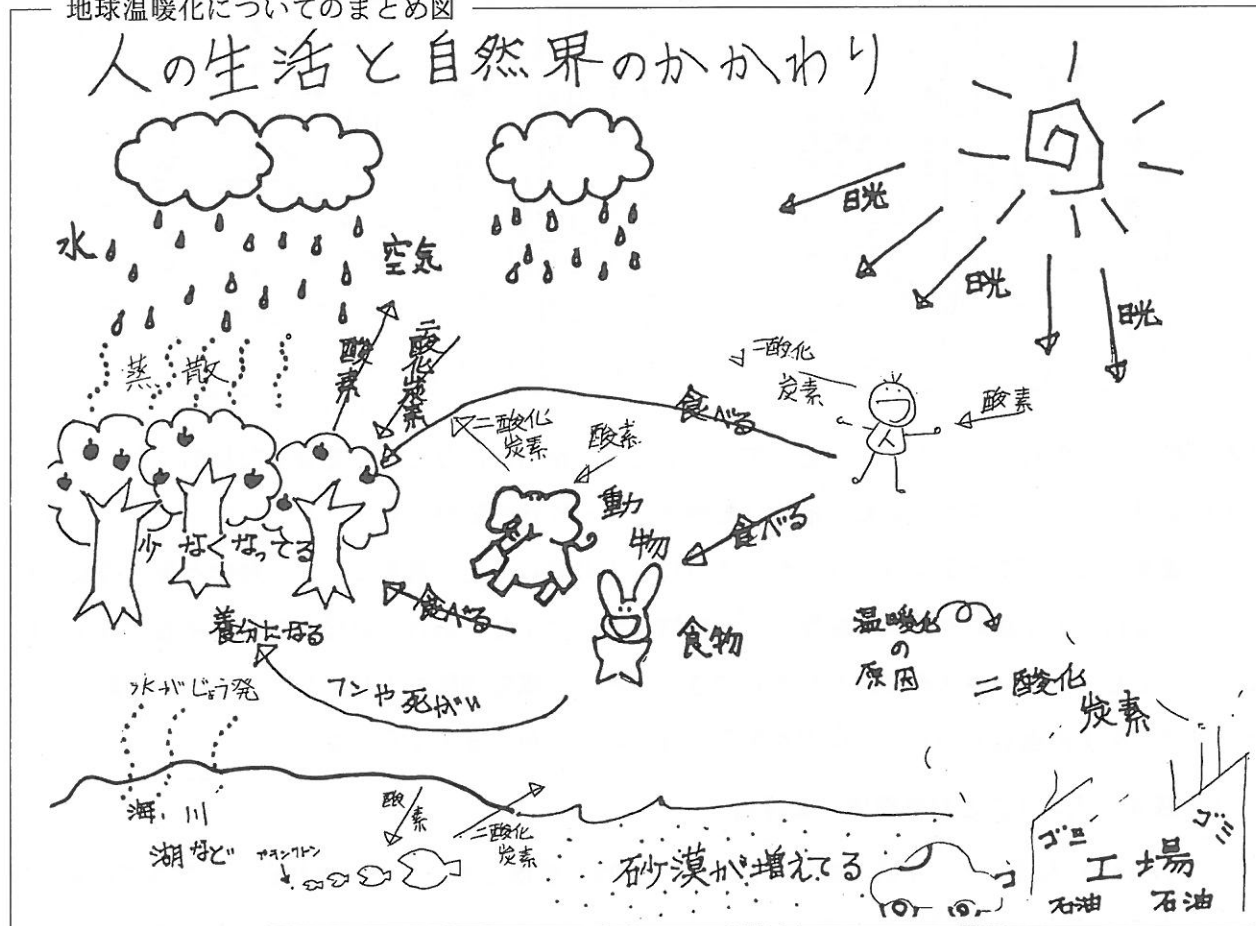 地球温暖化についてのまとめ図
人の生活と自然界のかかわり
日光
日光
日光
水
空気
蒸散
酸素
二酸化炭素
二酸化
炭素
酸素
人
食べる
二酸化
炭素
酸素
動物
食べる
少なくなってる
食べる
食物
養分になる
フンや死がい
温暖化
の
原因
二酸化
炭素
水がじょう発
海、川
湖など
プランクトン
酸素
二酸化
炭素
砂漠が増えてる
ゴミ
ゴミ
工場
石油
石油